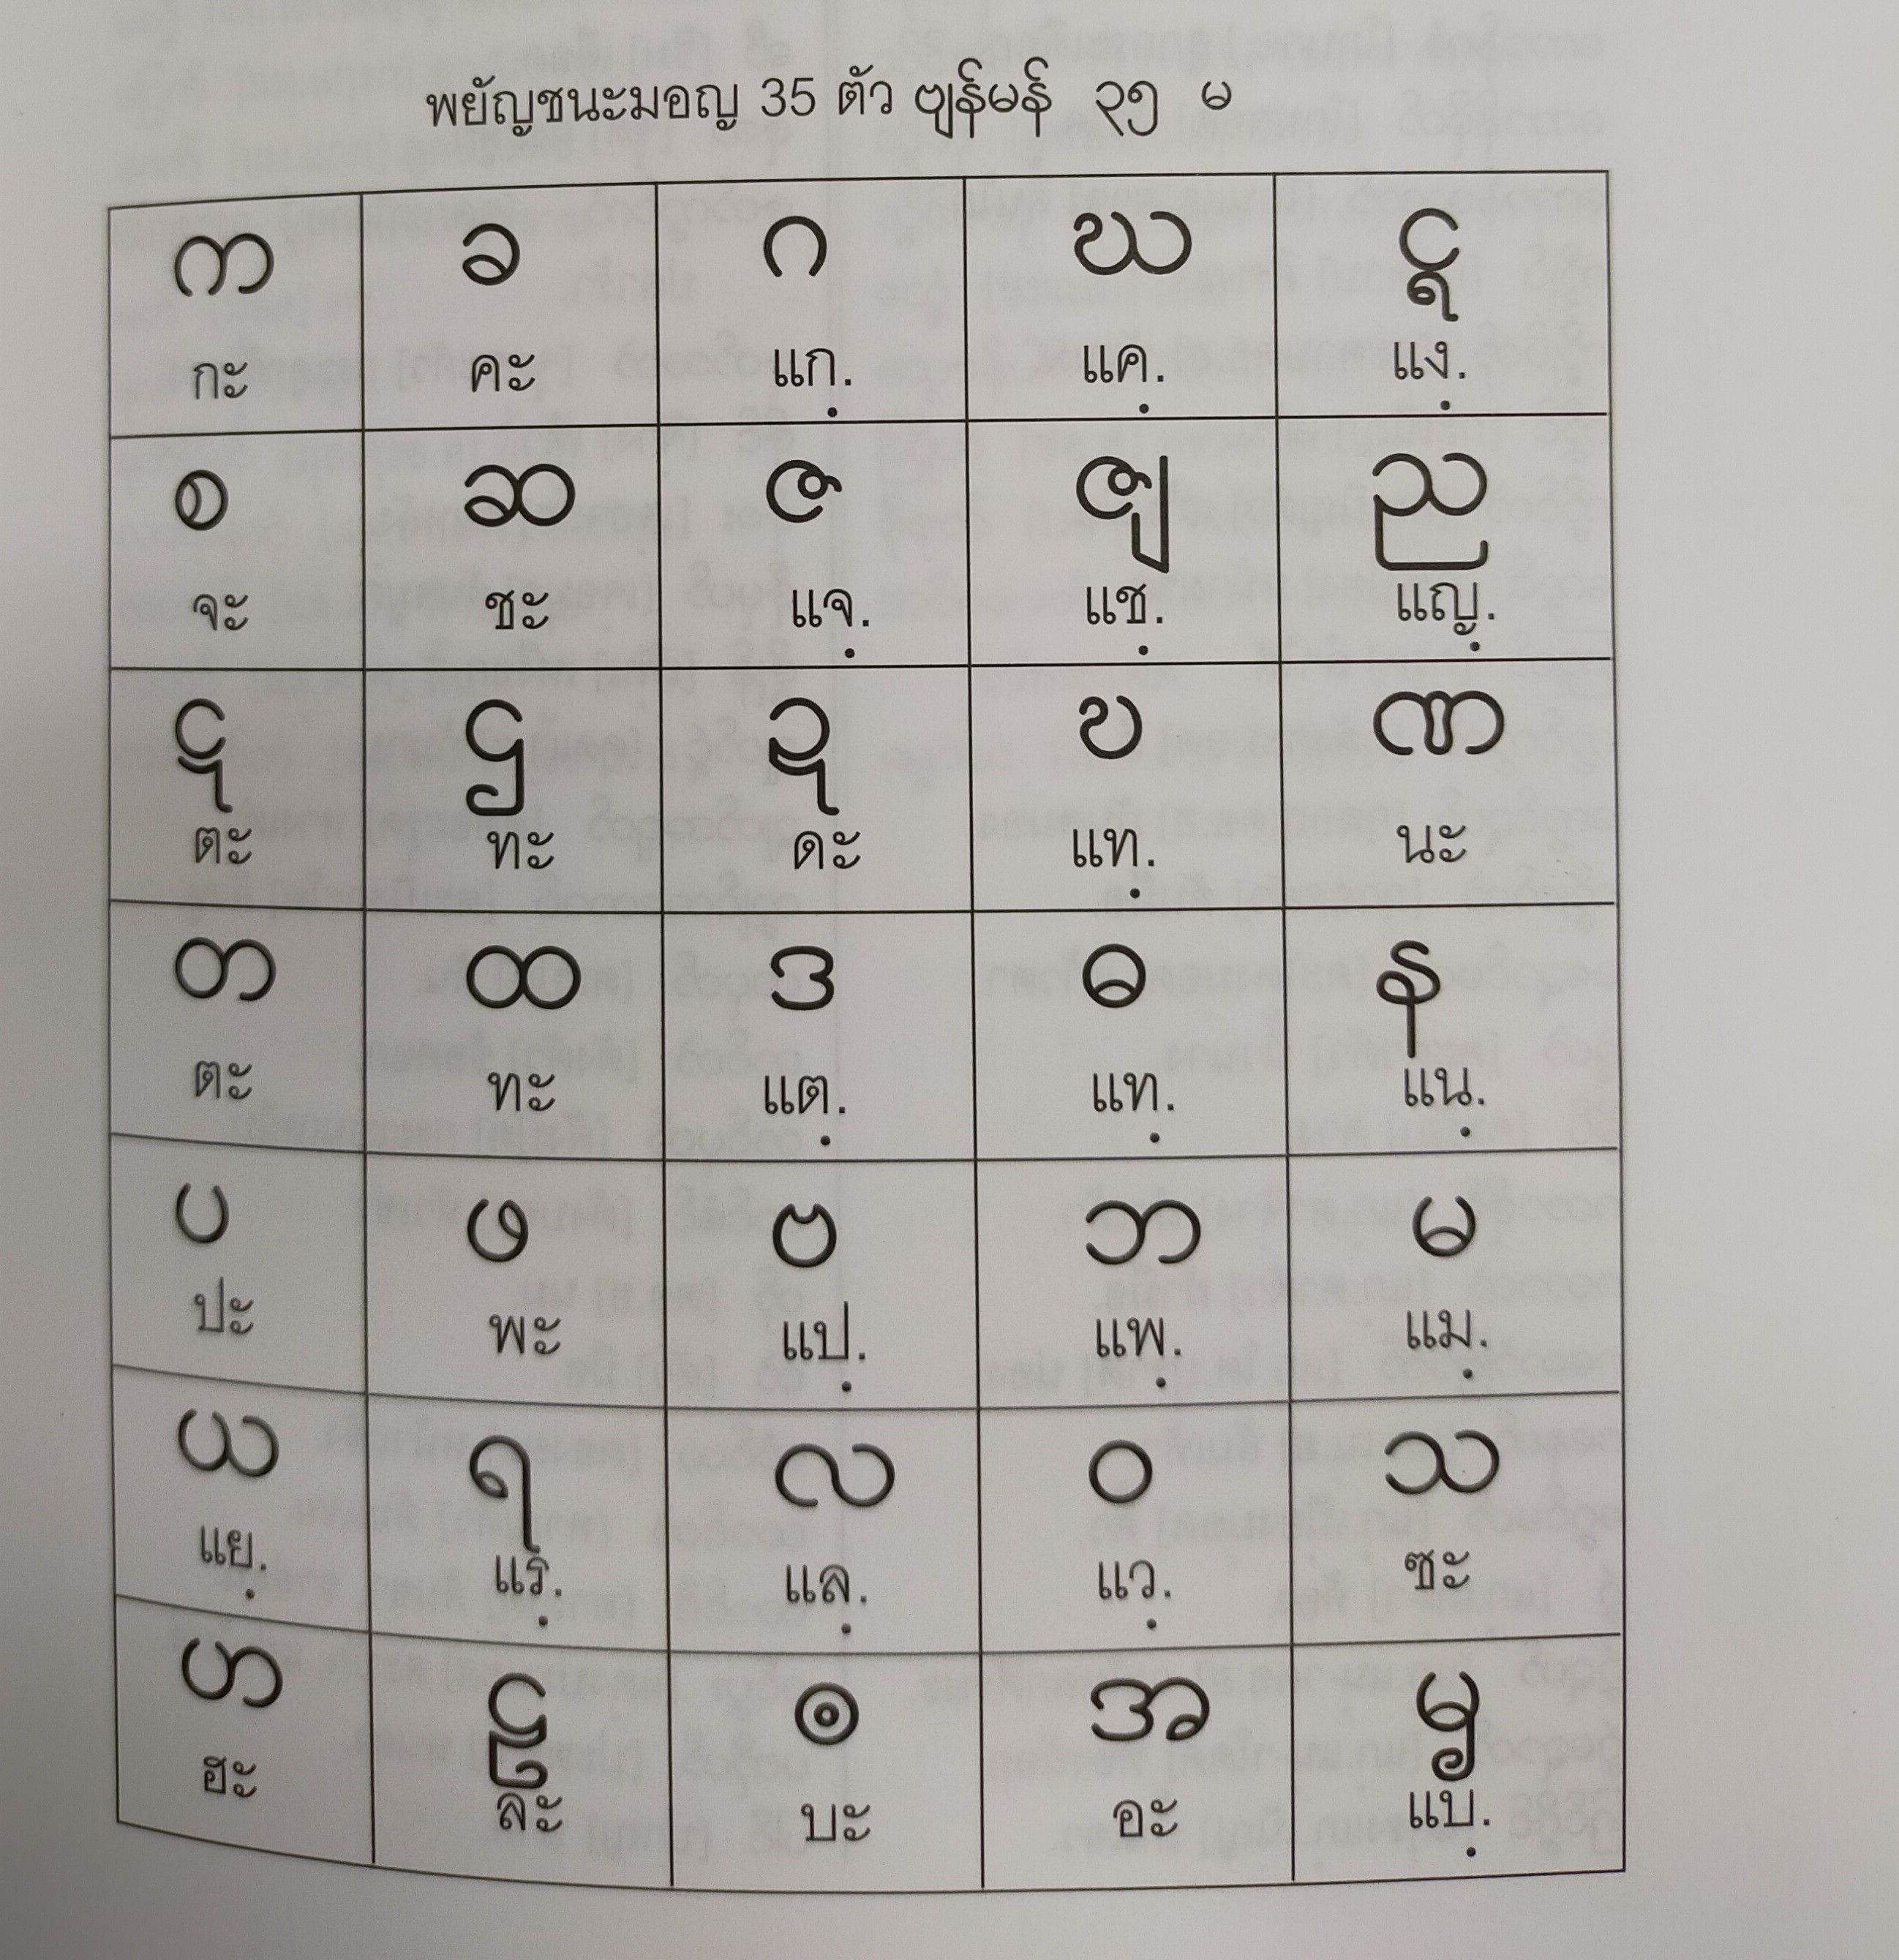 พยัญชนะมอญ 35 ตัว ဗျန်မန် ၃၅ မ
က ခ ဂ ဃ ၚ
กะ คะ แก̣. แค̣. แง̣.
စ ဆ ဇ ၛ ည
จะ ชะ แจ̣. แช̣. แญ̣.
ဋ ဌ ဍ ဎ ဏ
ตะ ทะ ดะ แท̣. นะ
တ ထ ဒ ဓ န
ตะ ทะ แต̣. แท̣. แน̣.
ပ ဖ ဗ ဘ မ
ปะ พะ แป̣. แพ̣. แม̣.
ယ ရ လ ဝ သ
แย̣. แร̣. แล̣. แว̣. ซะ
ဟ ဠ ၜ အ ၝ
ฮะ ละ บะ อะ แบ̣.